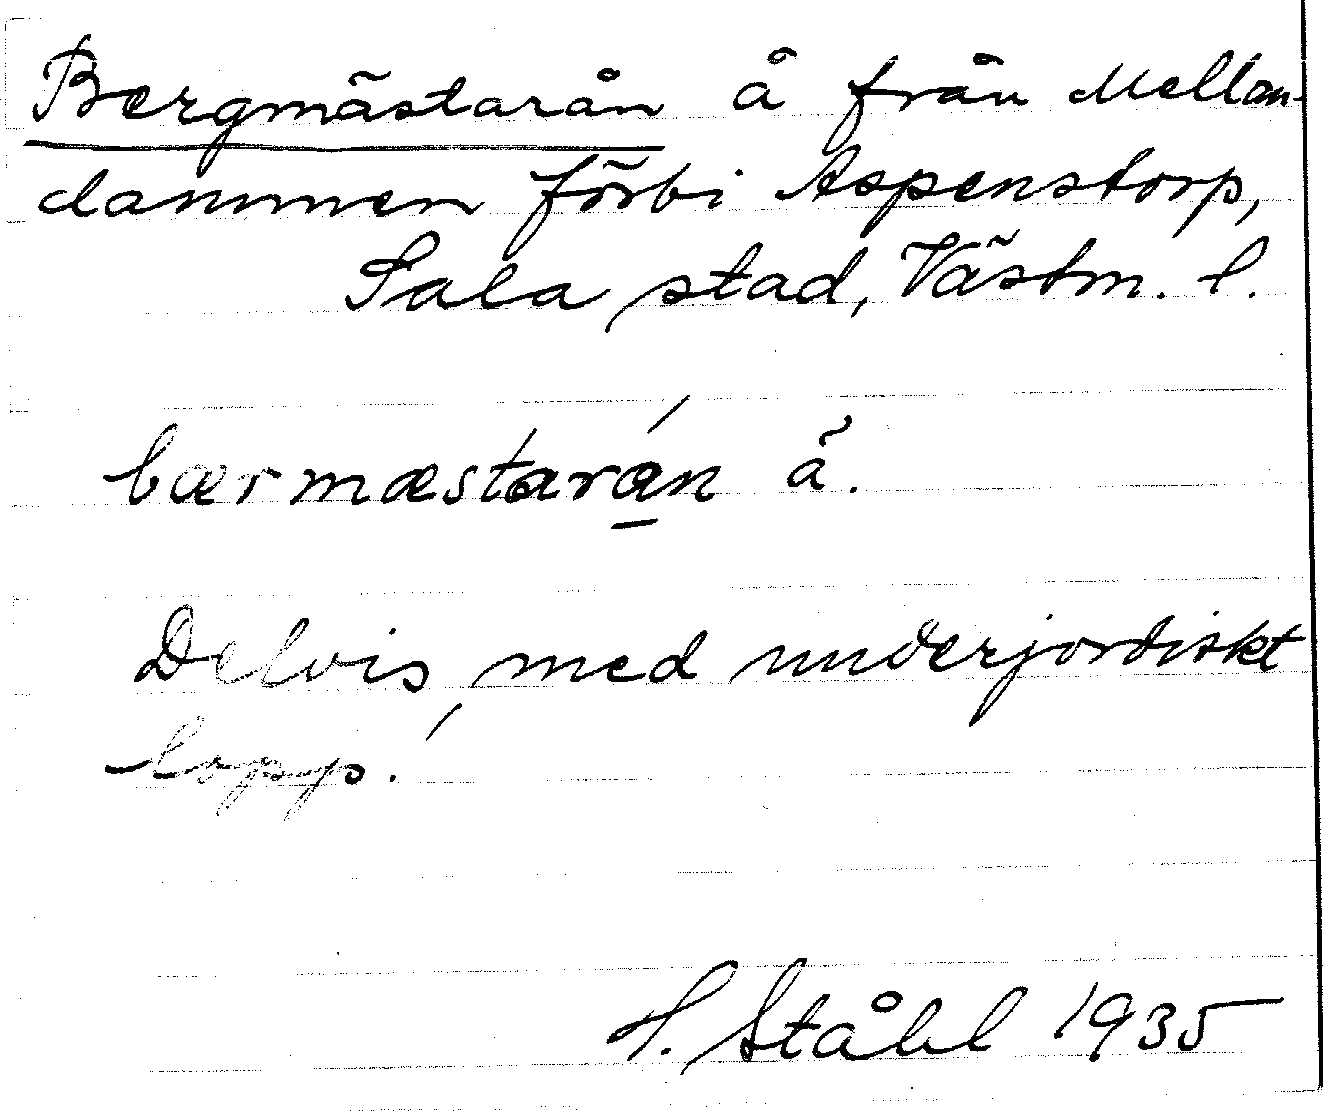 Bergmästarån å från Mellan-
dammen förbi Aspenstorp,
Sala stad, Västm. l.
bærmæstarán å.
Delvis med underjordiskt
lopp.
H. Ståhl 1935